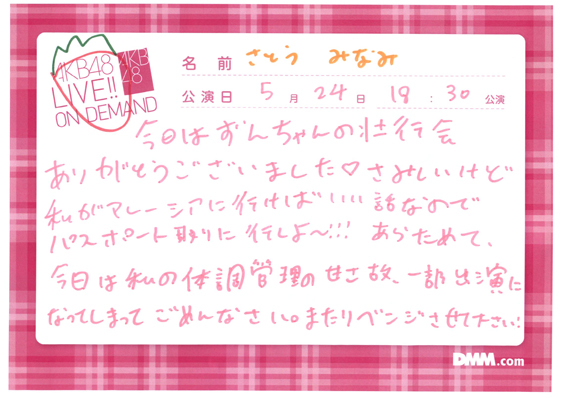 AKB48
LIVE!!
ON DEMAND
AKB
48
名前 さとう みなみ
公演日 5月24日 18:30公演
今日はずんちゃんの壮行会
ありがとうございました♡さみしいけど
私がマレーシアに行けばいい話なので
パスポート取りに行しよ〜!!! あらためて、
今日は私の体調管理の甘さ故、一部出演に
なってしまってごめんなさい。またリベンジさせて下さい!
DMM.com